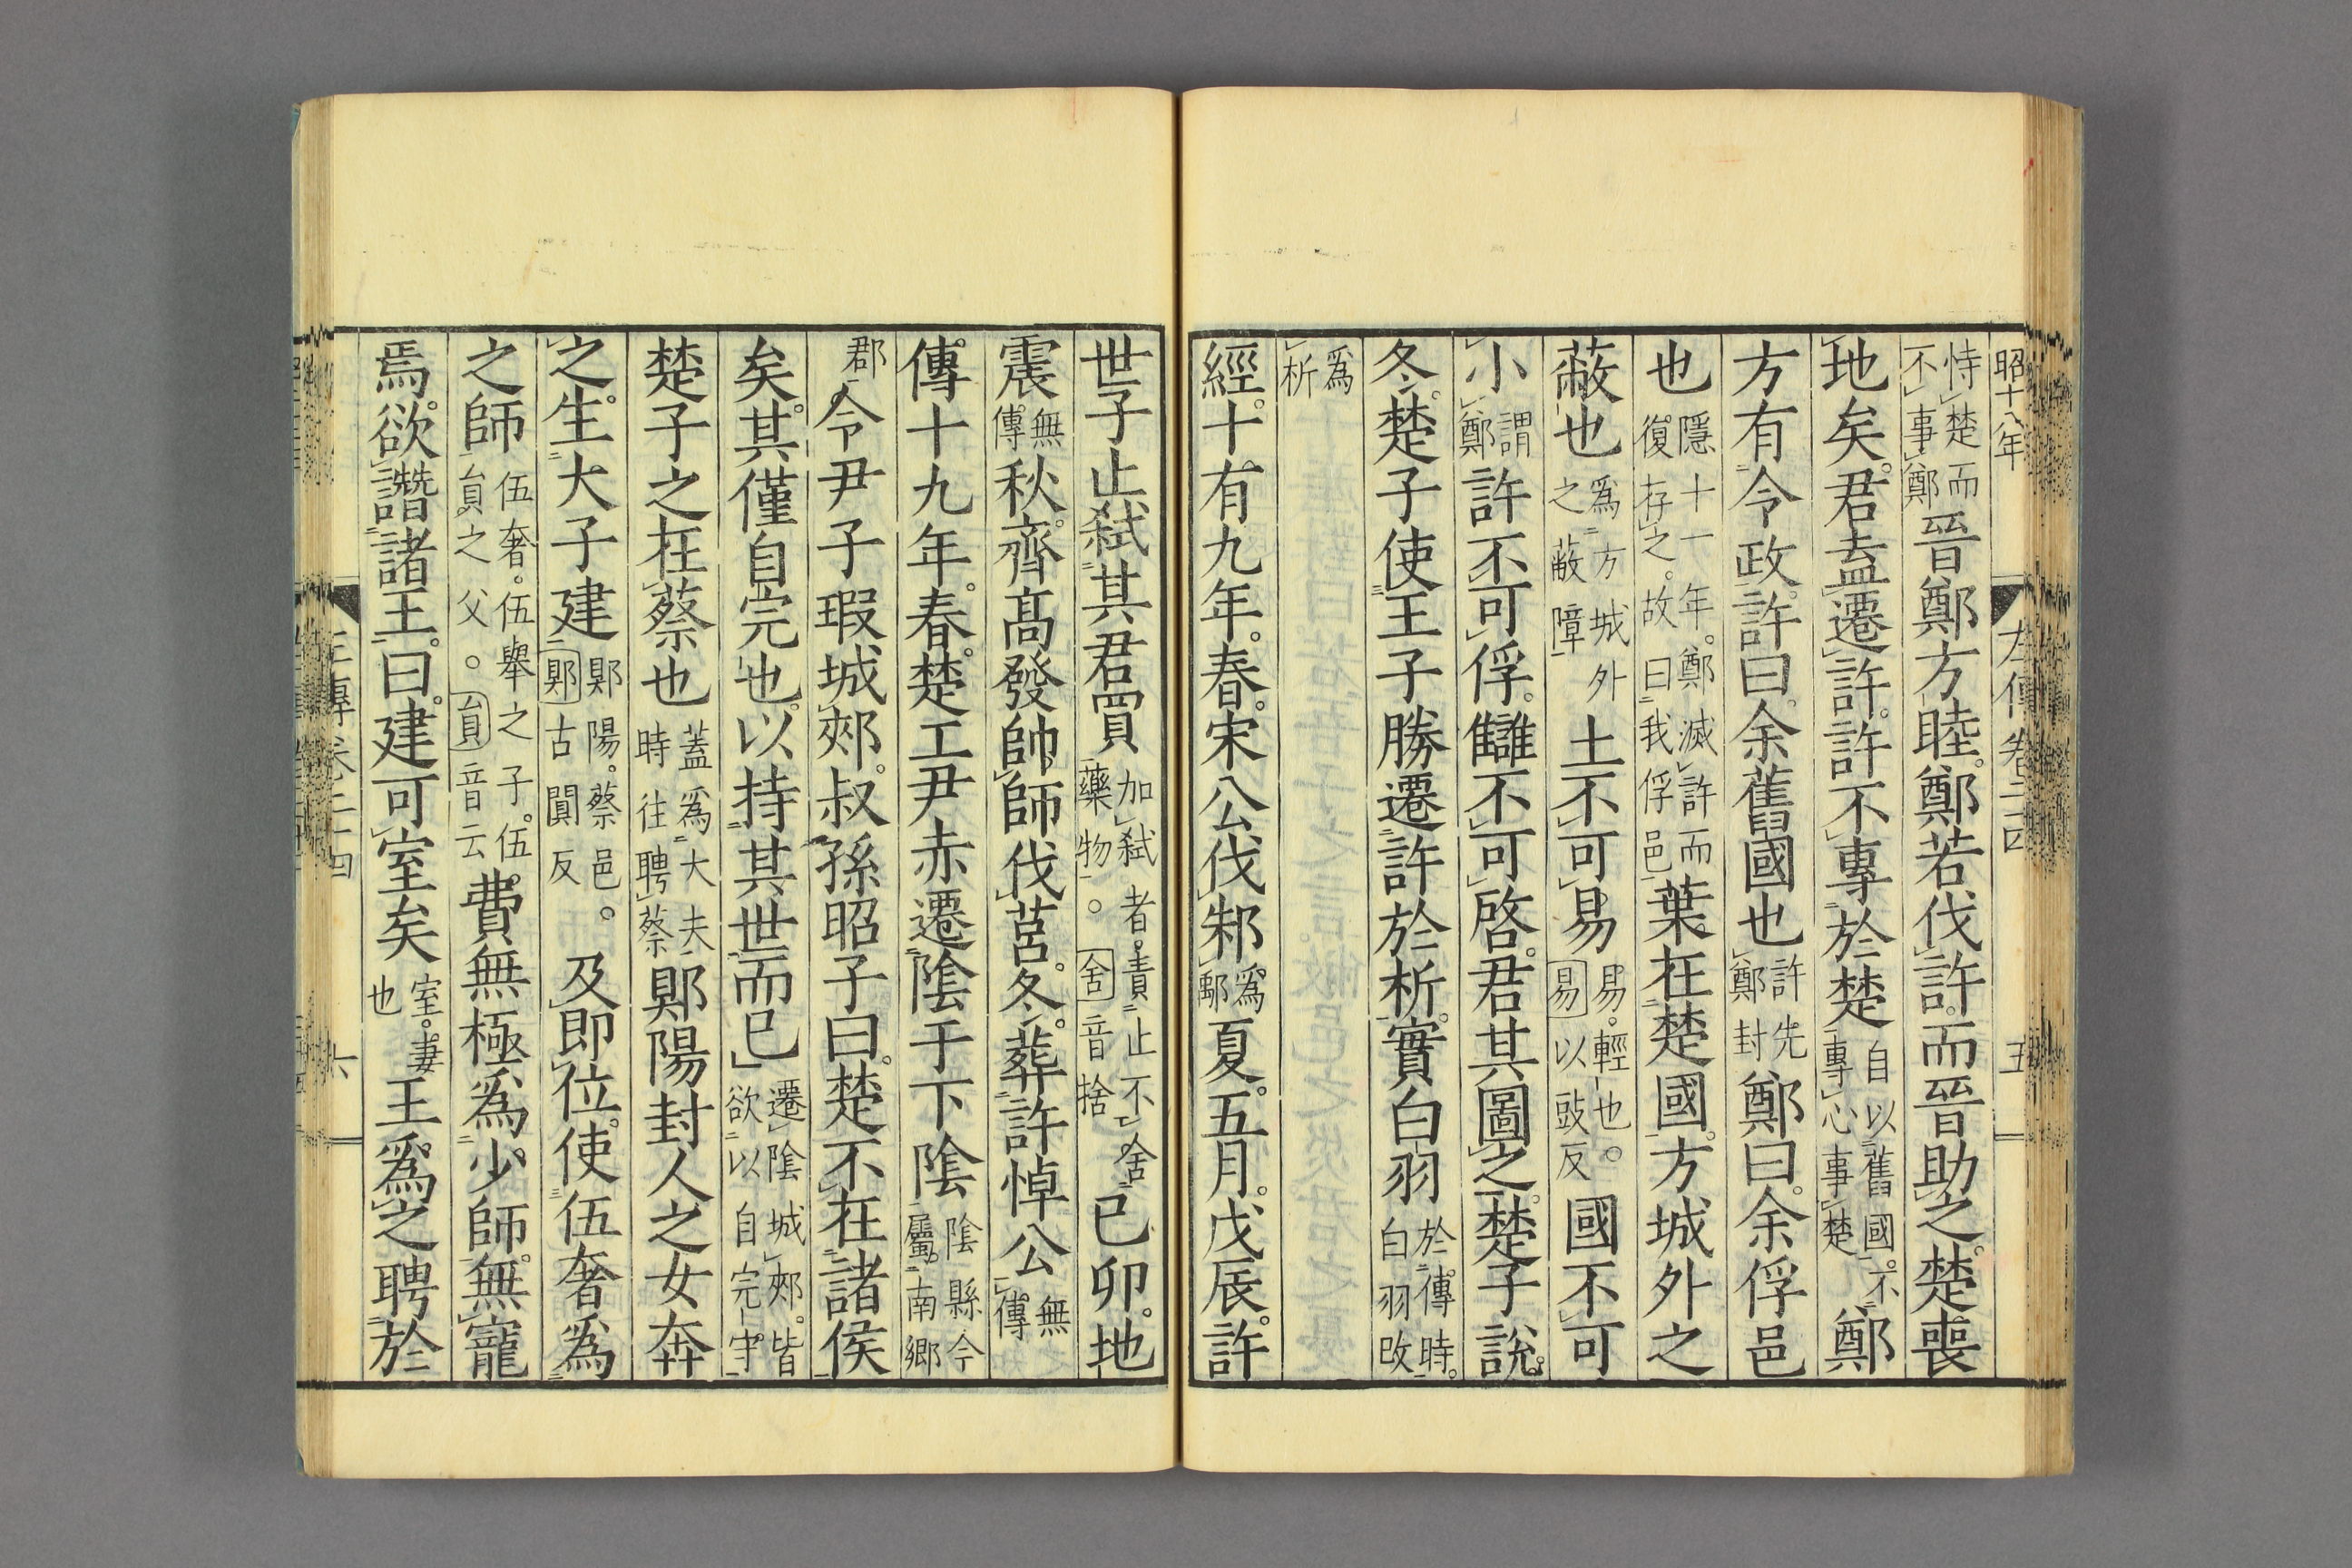 昭十八年 左傳卷二四 五
恃楚而不事鄭晉鄭方睦。鄭若伐許。而晉助之。楚喪
地矣。君盍遷許。許不專於楚自以舊國。不專心事楚鄭
方有令政。許曰。余舊國也許先鄭封鄭曰。余俘邑
也隱十一年。鄭滅許而復存之。故曰我俘邑葉在楚國。方城外之
蔽也爲方城外之蔽障土不可易易。輕也。易以豉反國不可
小謂鄭許不可俘。讎不可啓。君其圖之。楚子說。
冬。楚子使王子勝遷許於析。實白羽於傳時。白羽改
爲析
經。十有九年。春。宋公伐邾爲鄅夏。五月。戊辰。許
世子止弑其君買加弑者。責止不舍藥物。舍音捨己卯。地
震無傳秋。齊高發帥師伐莒。冬。葬許悼公無傳
傳。十九年。春。楚工尹赤遷陰于下陰陰縣今屬南鄉
郡。令尹子瑕城郟。叔孫昭子曰。楚不在諸侯
矣。其僅自完也。以持其世而已遷陰城郟。皆欲以自完守
楚子之在蔡也蓋爲大夫時往聘蔡郹陽封人之女奔
之。生大子建郹陽。蔡邑。郹古闃反及即位。使伍奢爲
之師伍奢。伍舉之子。伍員之父。員音云費無極爲少師。無寵
焉。欲譖諸王。曰。建可室矣室。妻也王爲之聘於
六